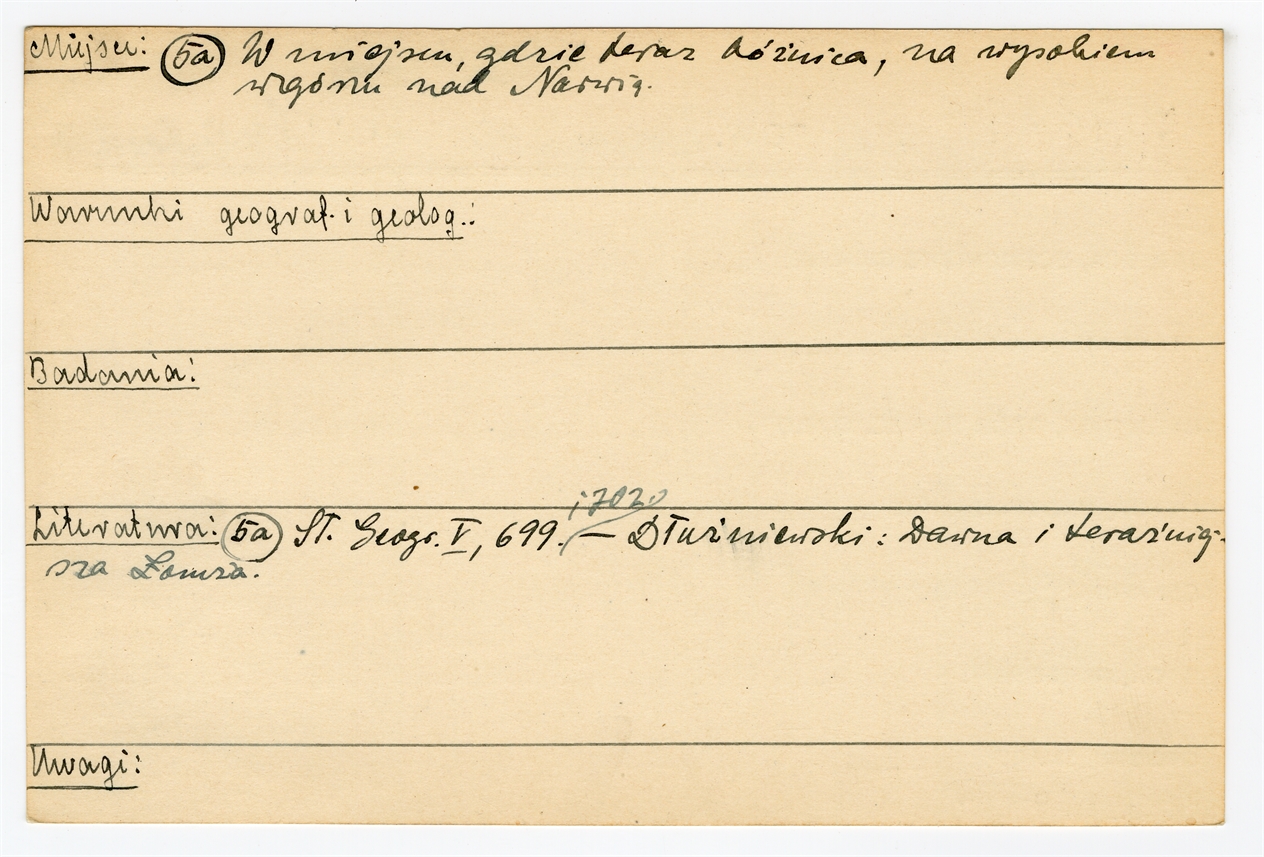 Miejsce: (5a) W miejscu, gdzie teraz bóżnica, na wysokiem
wzgórzu nad Narwią.
Warunki geograf. i geolog.:
Badania:
i 702
Literatura: (5a) Sł. Geogr. V, 699. — Dłużniewski: Dawna i teraźniej-
sza Łomża.
Uwagi: